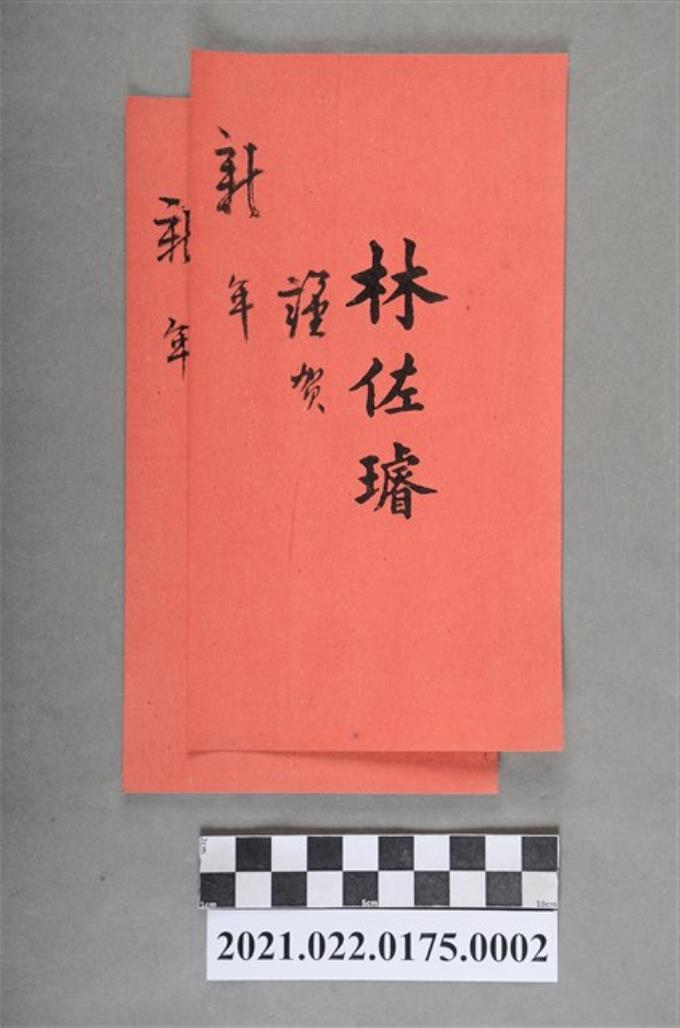 林佐璿
謹賀
新年
新年
2cm
1cm
5cm
10cm
2021.022.0175.0002